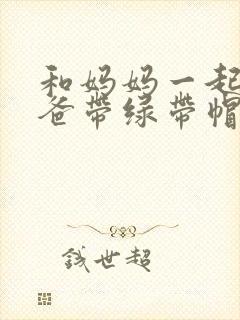 和妈妈一起
爸带绿带帽
钱世超